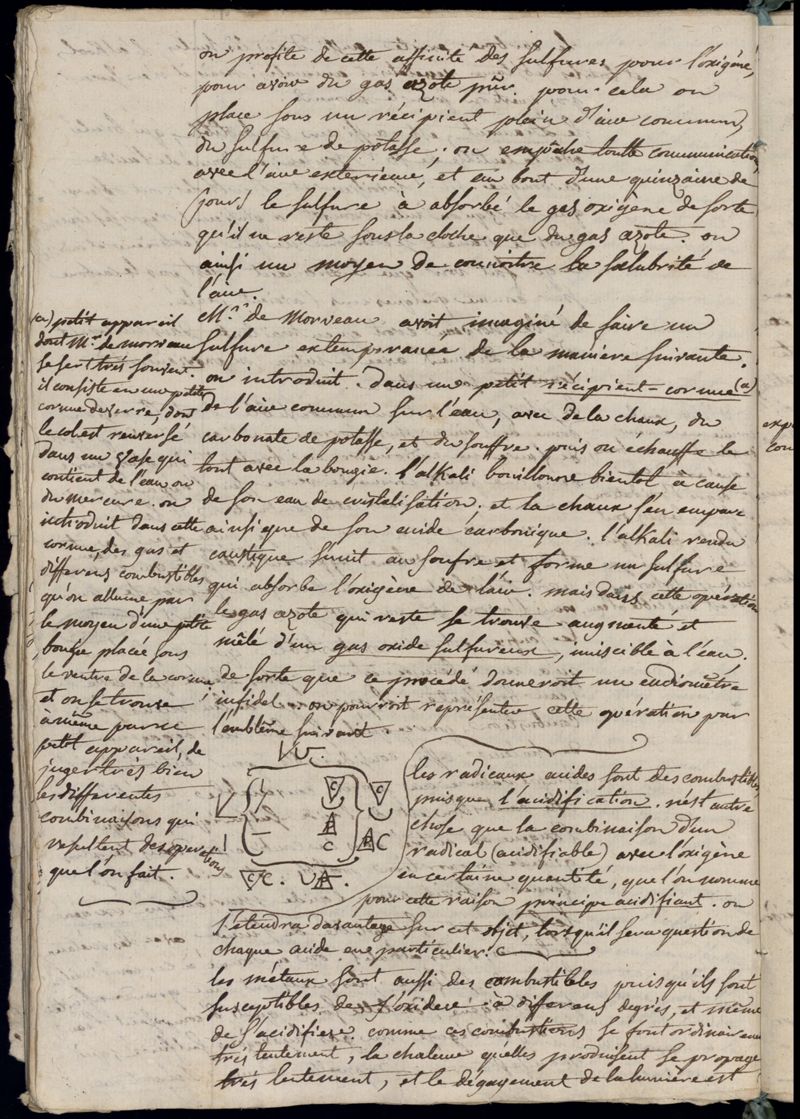 on profite de cette affinité des sulfures pour l'oxigène,
pour avoir du gas azote pûr. pour cela on
place sous un récipient plein d'air commun,
du sulfure de potasse. on empêche toutte communication
avec l'air exterieur, et au bout d'une quinzaine de
jours le sulfure à absorbé le gas oxigène de sorte
qu'il ne reste sous la cloche que du gas azote. on
ainsi un moyen de connoitre la salubrité de
l'air.
Mr. de Morveau avoit imaginé de faire un
sulfure extemporanée de la manière suivante.
on introduit dans un petit récipient-cornue (a)
de l'air commun sur l'eau, avec de la chaux, du
carbonate de potasse, et du souffre. puis on échauffe le
tout avec la bougie. l'alkali bouillonne bientot à cause
de son eau de cristalisation. et la chaux s'en empare
ainsi que de son acide carbonique. l'alkali rendu
caustique s'unit au soufre et forme un sulfure
qui absorbe l'oxigène de l'air. mais dans cette opération
le gas azote qui reste se trouve augmenté et
mêlé d'un gas oxide sulfureux, imiscible à l'eau.
de sorte que ce procédé donneroit un eudiomètre
infidel. on pourroit représenter cette opération par
l'emblême suivant.
(a) petit appareil
dont Mr. de morveau
se sert très souvent.
il consiste en une petite
cornue de verre, dont
le col est renversé
dans un vase qui
contient de l'eau ou
du mercure. on
introduit dans cette
cornue, des gas et
differens combustibles
qu'on allume par
le moyen d'une petite
bougie placée sous
le ventre de la cornue
et on se trouve
à même par ce
petit appareil, de
juger très bien
les differentes
combinaisons qui
resultent des operations
que l'on fait.
C
C
A
C
A C
C. A.
les radicaux acides sont des combustibles
puisque l'acidification n'est autre
chose que la combinaison d'un
radical (acidifiable) avec l'oxigène
en certaine quantité, que l'on nomme
pour cette raison principe acidifiant. on
s'etendra davantage sur cet objet, lorsqu'il sera question de
chaque acide en particulier.
les métaux sont aussi des combustibles puisqu'ils sont
susceptibles de s'oxider à differens degrés, et même
de s'acidifier. comme ces combustions se font ordinairement
très lentement, la chaleur qu'elles produisent se propage
très lentement, et le dégagement de la lumière est